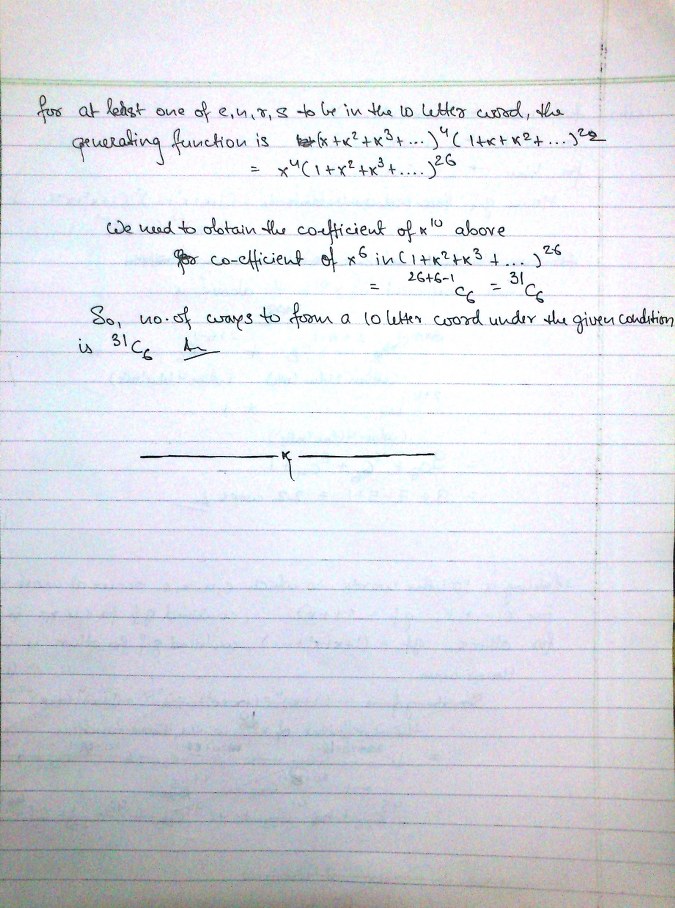 for at least one of e, n, r, s to be in the 10 letter word, the
generating function is (x + x² + x³ + ...)⁴ (1 + x + x² + ...)²²
= x⁴ (1 + x² + x³ + ....)²⁶
We need to obtain the co-efficient of x¹⁰ above
co-efficient of x⁶ in (1 + x² + x³ + ...)²⁶
= ²⁶⁺⁶⁻¹C₆ = ³¹C₆
So, no. of ways to form a 10 letter word under the given condition
is ³¹C₆ An
x